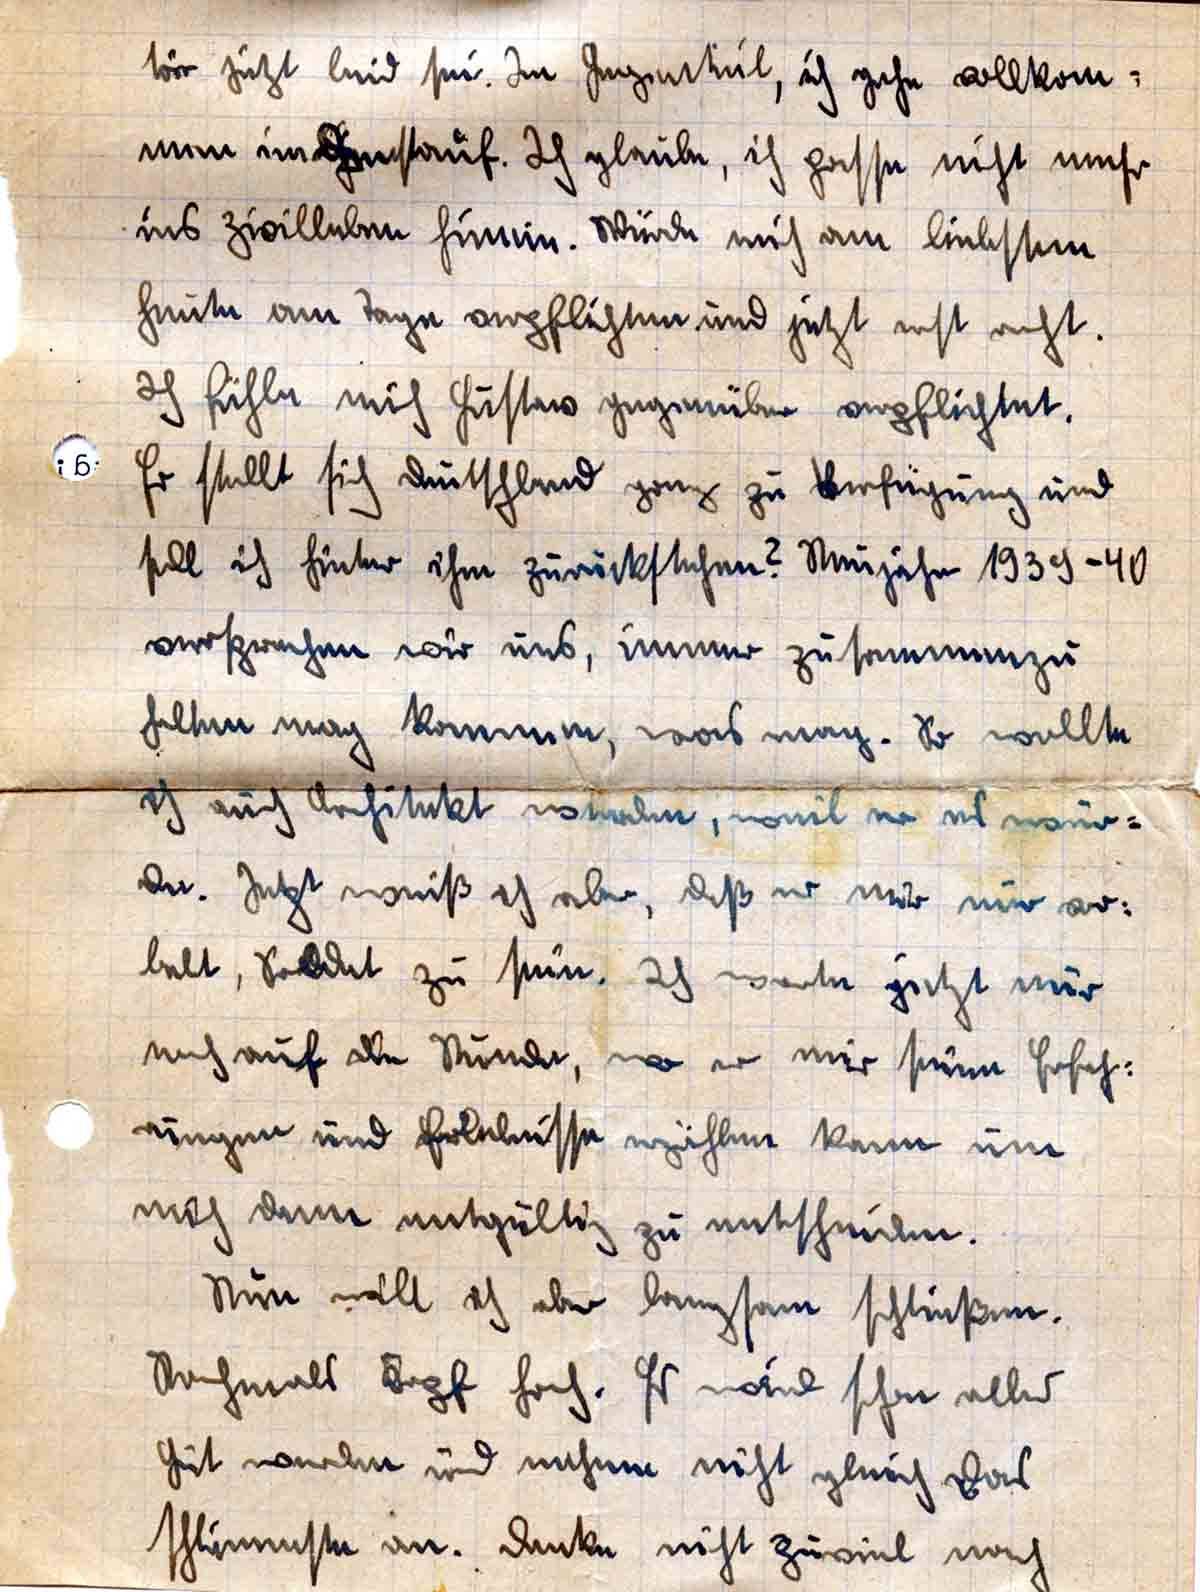 mir jetzt leid sei. Im Gegenteil, ich gehe vollkom=
men im Dienst auf. Ich glaube, ich passe nicht mehr
ins Zivilleben hinein. Würde mich am liebsten
heute am Tage verpflichten und jetzt erst recht.
Ich fühle mich Gustav gegenüber verpflichtet.
Er stellt sich Deutschland ganz zu Verfügung und
soll ich hinter ihm zurückstehen? Neujahr 1939-40
versprachen wir uns, immer zusammenzu
halten mag kommen, was mag. So wollte
ich auch Architekt werden, weil er es wür=
de. Jetzt weiß ich aber, daß er mir nur vor=
lebt, Soldat zu sein. Ich warte jetzt nur
noch auf die Stunde, wo er mir seine Erfah=
rungen und Erlebnisse erzählen kann um
mich dann entgültig zu entscheiden.
Nun will ich aber langsam schließen.
Nochmals Kopf hoch. Es wird schon alles
Gut werden und nehme nicht gleich das
schlimmste an. Denke nicht zuviel nach
6